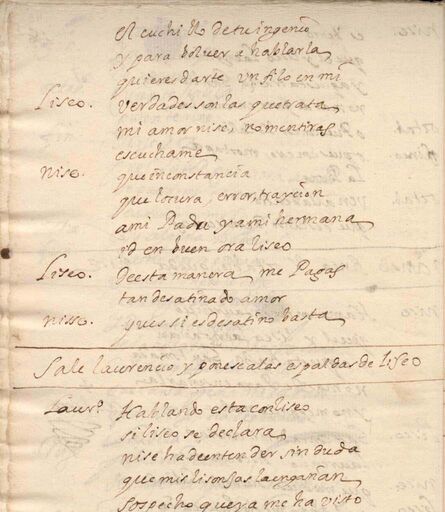 el cuchillo de tu ingenio
y para bolver a hablarla
quieres darte un filo en mi
Liseo. verdades son las que trata
mi amor nise, no mentiras
escuchame
nise. que inconstancia
que locura, error, traycion
a mi Padre y a mi hermana
id en buen ora liseo
Liseo. De esta manera me Pagas
tan desatinado amor
nisse. pues si es desatino basta
Sale laurencio, y ponese a las espaldas de liseo
Laur.o Hablando esta con liseo
si liseo se declara
nise ha de entender sin duda
que mis lisonjas la engañan
sospecho que ya me ha visto